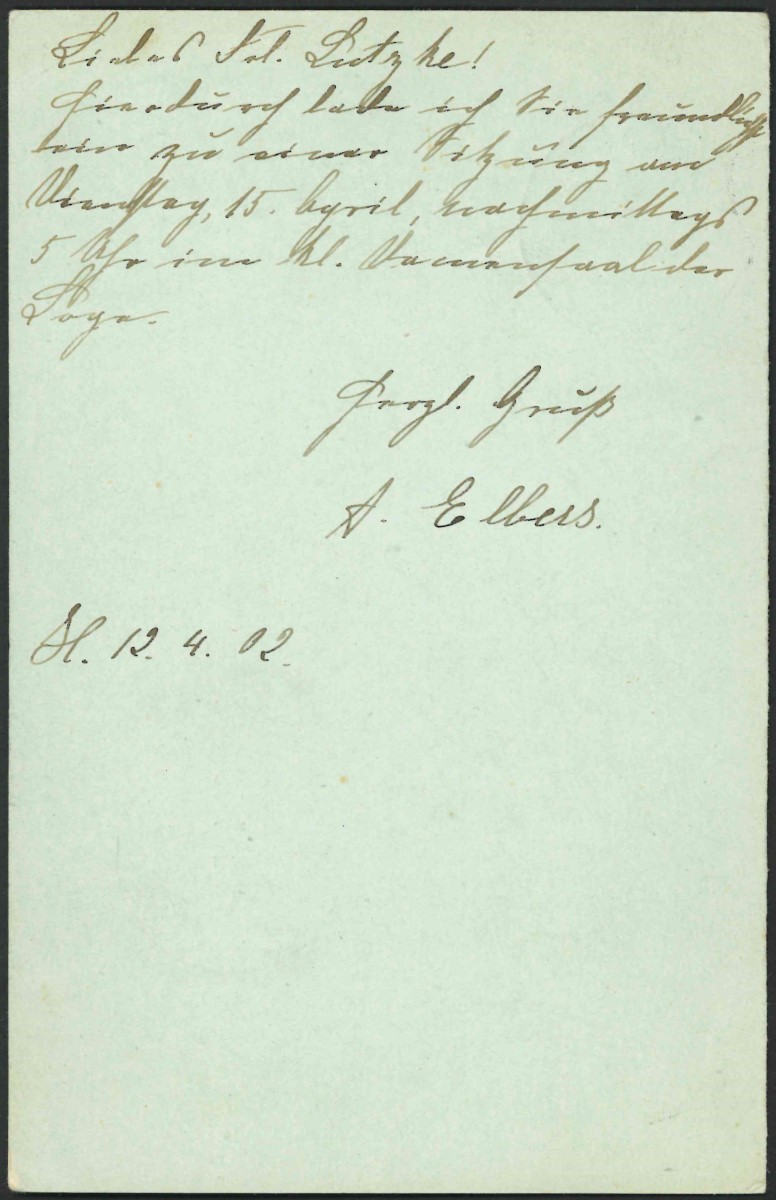 Liebes Frl. Lutzke!
Hierdurch lade ich Sie freundlichst
ein zu einer Sitzung am
Dienstag, 15. April, nachmittags
5 Uhr im kl. Damensaal der
Loge.
Herzl. Gruß
A. Elbers.
H. 12. 4. 02.